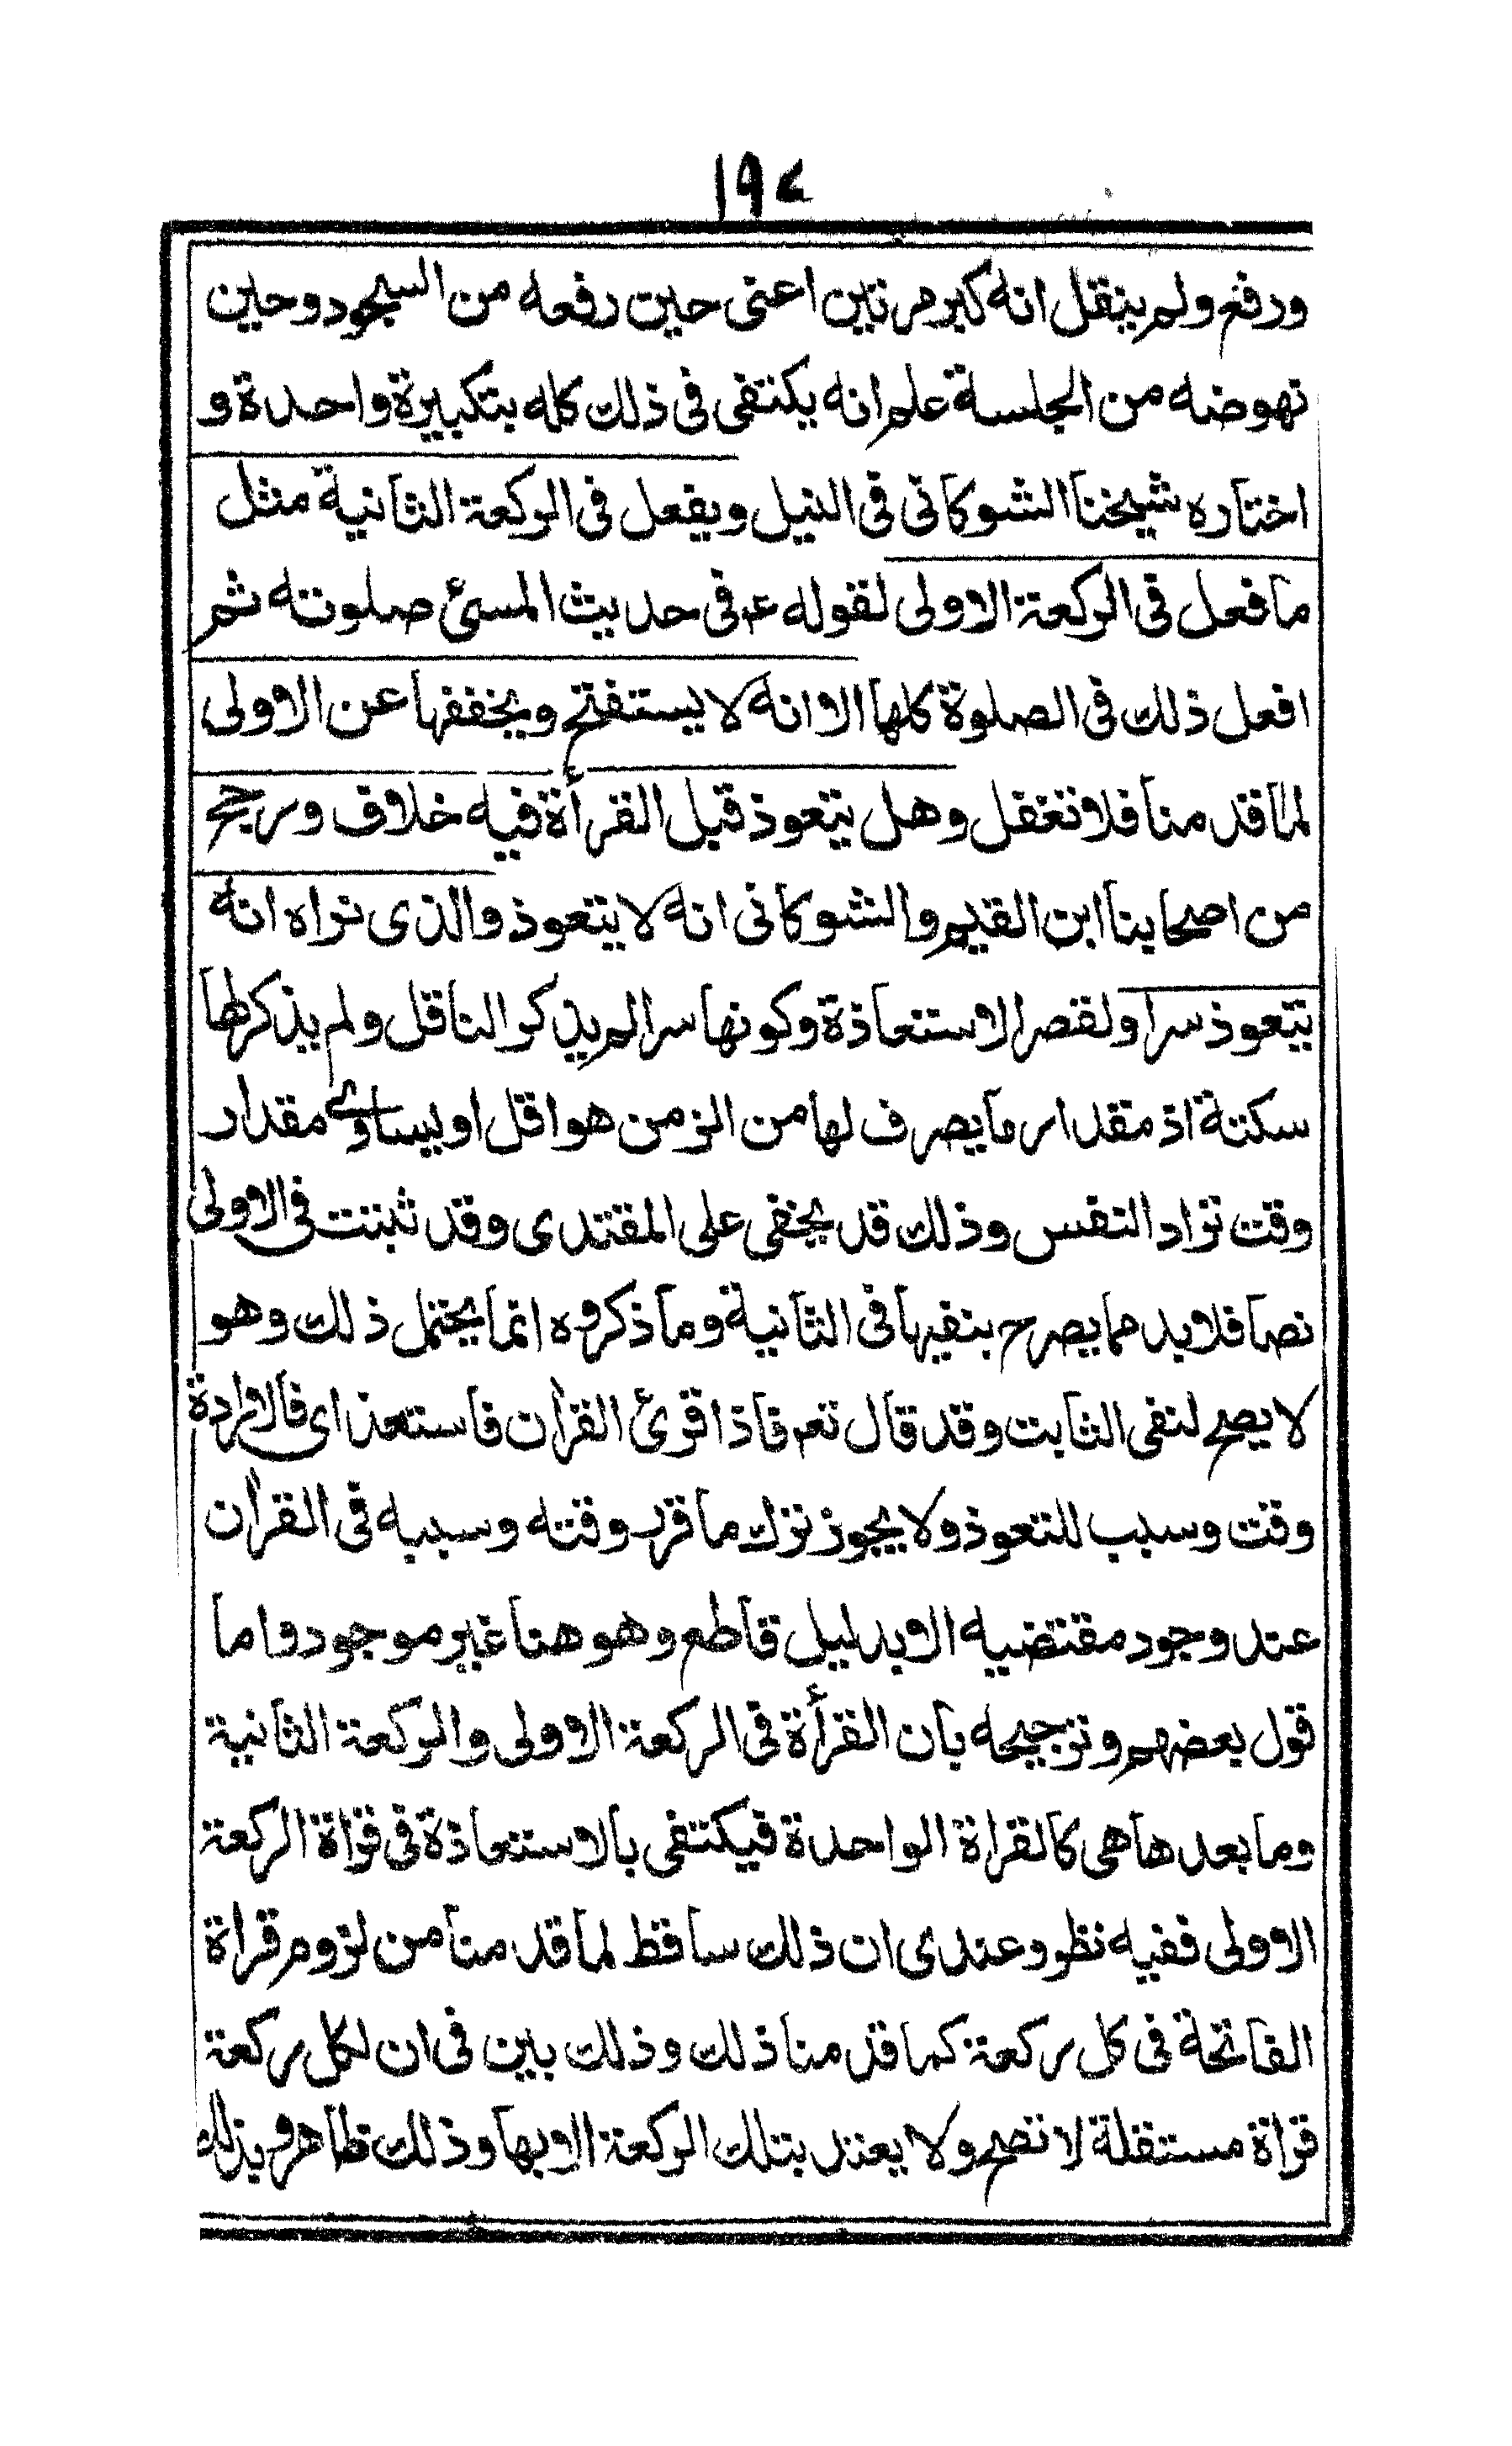 ١٩٧
ورفع ولم ينقل انه كبر مرتين اعنى حين رفعه من السجود وحين
نهوضه من الجلسة علم انه يكتفى فى ذلك كله بتكبيرة واحدة و
اختاره شيخنا الشوكانى فى النيل ويفعل فى الركعة الثانية مثل
ما فعل فى الركعة الاولى لقوله عم فى حديث المسئ صلوته ثم
افعل ذلك فى الصلوة كلها الا انه لا يستفتح ويخففها عن الاولى
لما قدمنا فلا تغفل وهل يتعوذ قبل القرأة فيه خلاف ورجح
من اصحابنا ابن القيم والشوكانى انه لا يتعوذ والذى نراه انه
يتعوذ سرا ولقصر الاستعاذة وكونها سرا لم يذكر الناقل ولم يذكر لها
سكتة اذ مقدار ما يصرف لها من الزمن هو اقل او يساوى مقدار
وقت تراد النفس وذلك قد يخفى على المقتدى وقد ثبتت فى الاولى
نصا فلا بد مما يصرح بنفيها فى الثانية وما ذكروه انما يحتمل ذلك وهو
لا يصح لنفى الثابت وقد قال تعم فاذا قرئ القرآن فاستعذ اى فالارادة
وقت وسبب للتعوذ ولا يجوز ترك ما قرر وقته وسببه فى القرآن
عند وجود مقتضيه الا بدليل قاطع وهو هنا غير موجود واما
قول بعضهم وترجيحه بان القرأة فى الركعة الاولى والركعة الثانية
وما بعدها هى كالقراة الواحدة فيكتفى بالاستعاذة فى قراة الركعة
الاولى ففيه نظر وعندى ان ذلك ساقط لما قدمنا من لزوم قراة
الفاتحة فى كل ركعة كما قدمنا ذلك وذلك بين فى ان لكل ركعة
قراة مستقلة لا تصح ولا يعتد بتلك الركعة الا بها وذلك ظاهر وبذلك